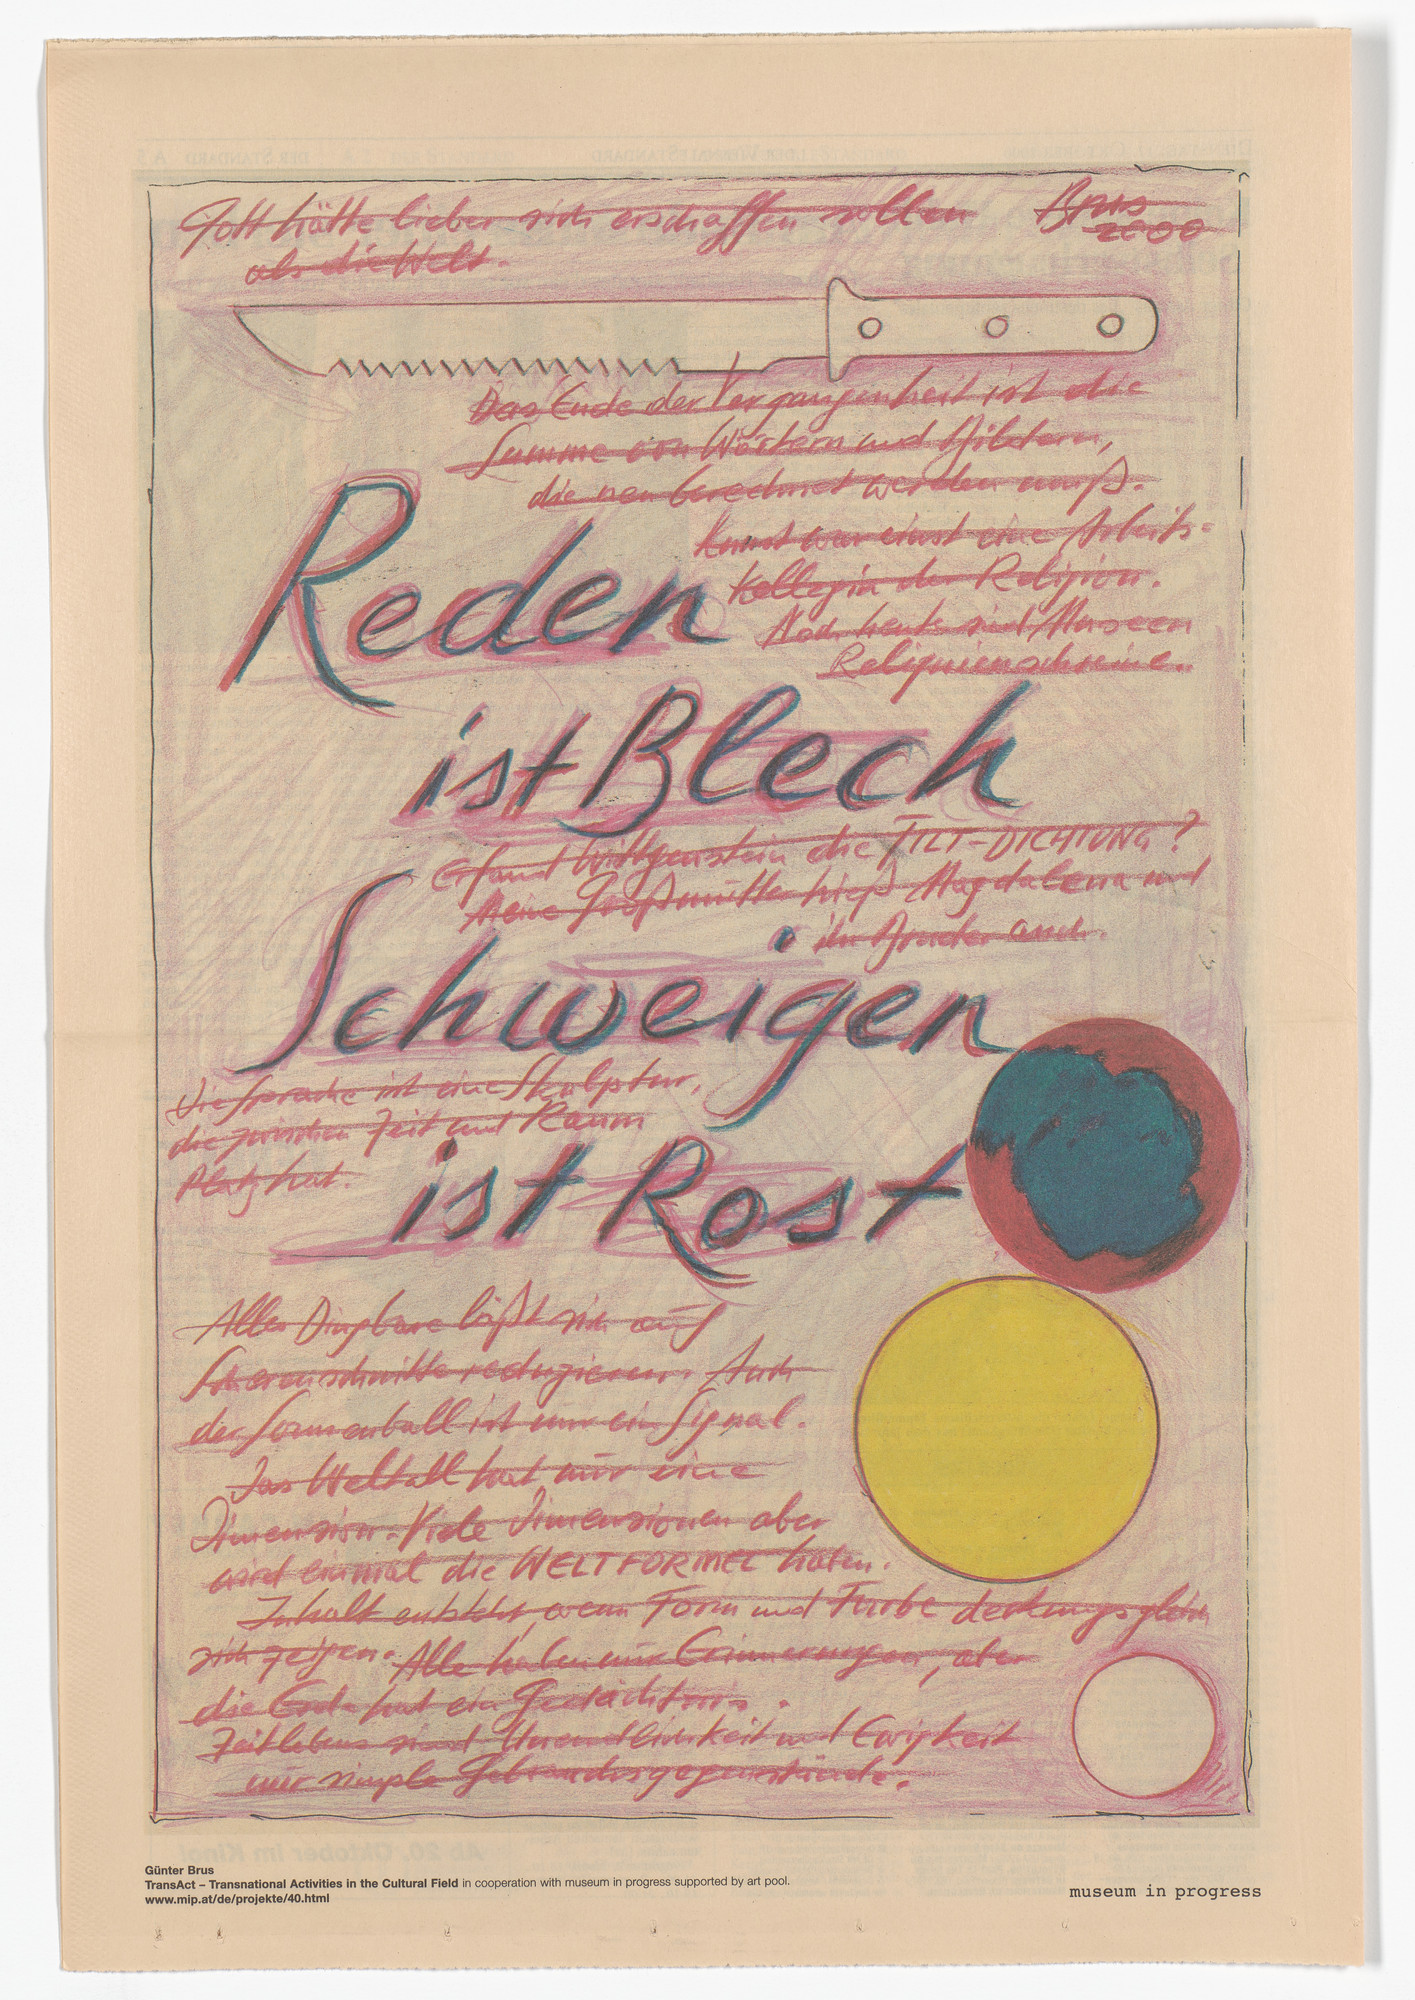 Gott hätte lieber sich erschaffen sollen
als die Welt.
Brus
2000
Das Ende der Vergangenheit ist die
Summe von Wörtern und Bildern,
die neu berechnet werden muß.
Kunst war einst eine Arbeits-
Kollegin der Religion.
Noch heute sind Museen
Reliquienschreine.
Reden
ist Blech
Erfand Wittgenstein die TILT-DICHTUNG?
Meine Großmutter hieß Magdalena und
ihr Bruder auch.
Schweigen
Die Sprache ist eine Skulptur,
die zwischen Zeit und Raum
Platz hat.
ist Rost
Alles Dingbare läßt sich auf
Scherenschnitte reduzieren. Auch
der Sonnenball ist nur ein Signal.
Das Weltall hat nur eine
Dimension. Viele Dimensionen aber
wird einmal die WELTFORMEL haben.
Inhalt entsteht, wenn Form und Farbe deckungsgleich
sich zeigen. Alle haben nur Erinnerungen, aber
die Erde hat ein Gedächtnis.
Zeitlebens sind Unendlichkeit und Ewigkeit
nur simple Gebrauchsgegenstände.
Günter Brus
TransAct – Transnational Activities in the Cultural Field in cooperation with museum in progress supported by art pool.
www.mip.at/de/projekte/40.html
museum in progress